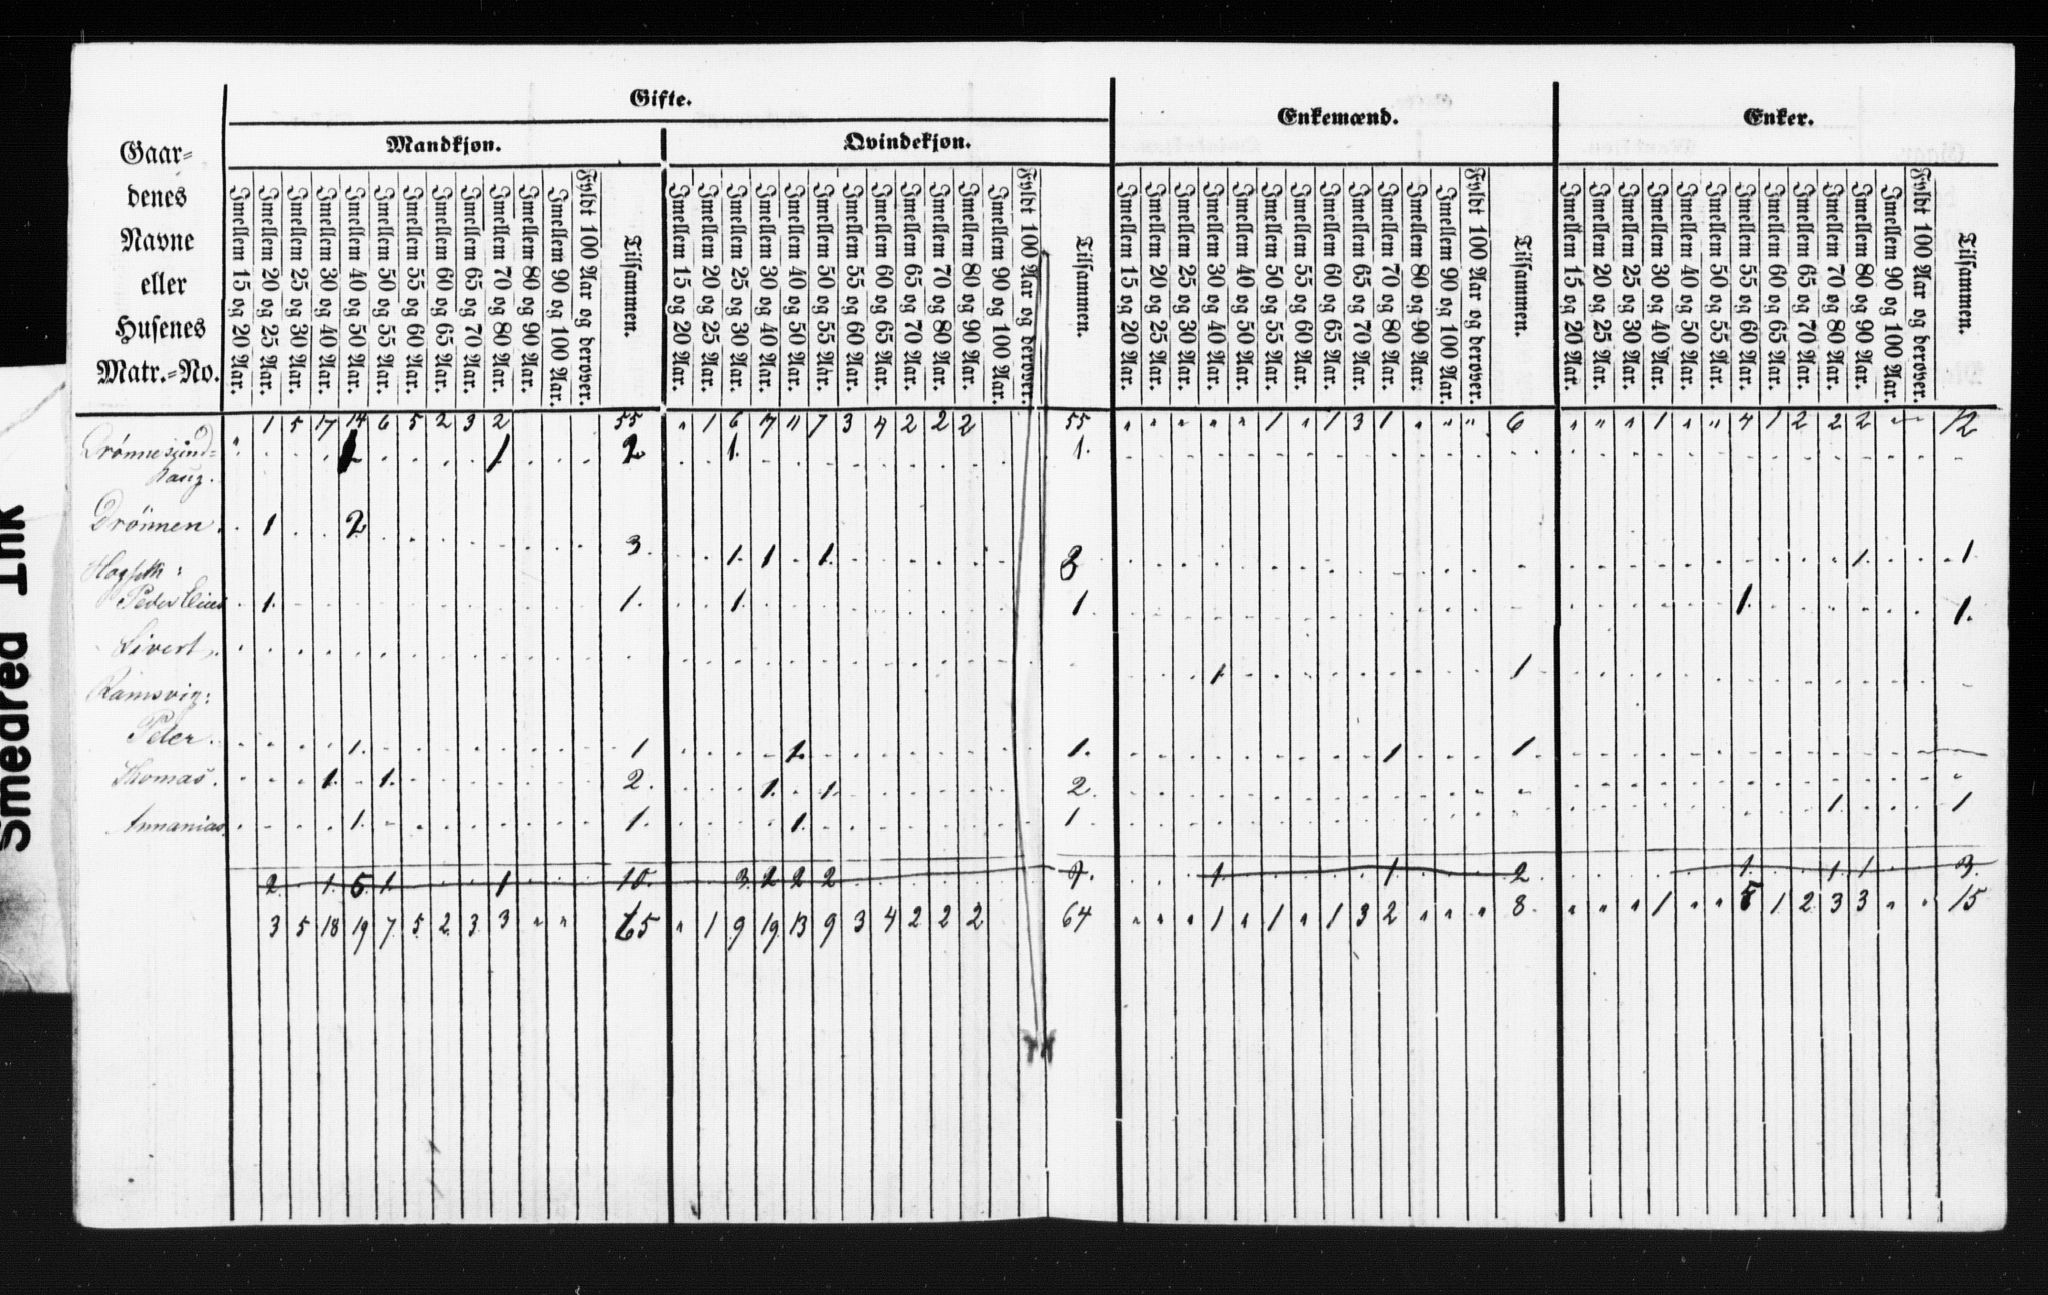 Gifte.
Enkemænd.
Enker.
Mandkjøn.
Qvindekjøn.
Gaar=
denes
Navne
eller
Husenes
Matr.=No.
Imellem 15 og 20 Aar.
Imellem 20 og 25 Aar.
Imellem 25 og 30 Aar.
Imellem 30 og 40 Aar.
Imellem 40 og 50 Aar.
Imellem 50 og 55 Aar.
Imellem 55 og 60 Aar.
Imellem 60 og 65 Aar.
Imellem 65 og 70 Aar.
Imellem 70 og 80 Aar.
Imellem 80 og 90 Aar.
Imellem 90 og 100 Aar.
Fyldt 100 Aar og derover.
Tilsammen.
Imellem 15 og 20 Aar.
Imellem 20 og 25 Aar.
Imellem 25 og 30 Aar.
Imellem 30 og 40 Aar.
Imellem 40 og 50 Aar.
Imellem 50 og 55 Aar.
Imellem 55 og 60 Aar.
Imellem 60 og 65 Aar.
Imellem 65 og 70 Aar.
Imellem 70 og 80 Aar.
Imellem 80 og 90 Aar.
Imellem 90 og 100 Aar.
Fyldt 100 Aar og derover.
Tilsammen.
Imellem 15 og 20 Aar.
Imellem 20 og 25 Aar.
Imellem 25 og 30 Aar.
Imellem 30 og 40 Aar.
Imellem 40 og 50 Aar.
Imellem 50 og 55 Aar.
Imellem 55 og 60 Aar.
Imellem 60 og 65 Aar.
Imellem 65 og 70 Aar.
Imellem 70 og 80 Aar.
Imellem 80 og 90 Aar.
Imellem 90 og 100 Aar.
Fyldt 100 Aar og derover.
Tilsammen.
Imellem 15 og 20 Aar.
Imellem 20 og 25 Aar.
Imellem 25 og 30 Aar.
Imellem 30 og 40 Aar.
Imellem 40 og 50 Aar.
Imellem 50 og 55 Aar.
Imellem 55 og 60 Aar.
Imellem 60 og 65 Aar.
Imellem 65 og 70 Aar.
Imellem 70 og 80 Aar.
Imellem 80 og 90 Aar.
Imellem 90 og 100 Aar.
Fyldt 100 Aar og derover.
Tilsammen.
" 1 5 17 14 6 5 2 3 2 55 " 1 6 17 11 7 3 4 2 2 2 55 " " " " " 1 " 1 3 1 " " " 6 " " " 1 " " 4 1 2 2 2 " 12
1 2 1 1.
haug.
Drönnen. 1 2 3 1 1 1 3 1 1
Hogseth:
Peder 1 1. 1 1 1 1.
Sivert. 1 1
Ramsvig:
Peter. 1. 1 1. 1. 1 1
Thomas. 1 1 2. 1. 1. 2. 1 1
Annanias 1. 1. 1. 1
2. 1. 5 1 1 10. 3 2 2 2 9. 1 1 2 1 1 1 3.
3 5 18 19 7 5 2 3 3 " " 65 " 1 9 19 13 9 3 4 2 2 2 64 " " " 1 " 1 " 1 3 2 " " " 8. " " " 1 " " 5 1 2 3 3 " " 15
Smedred Ink